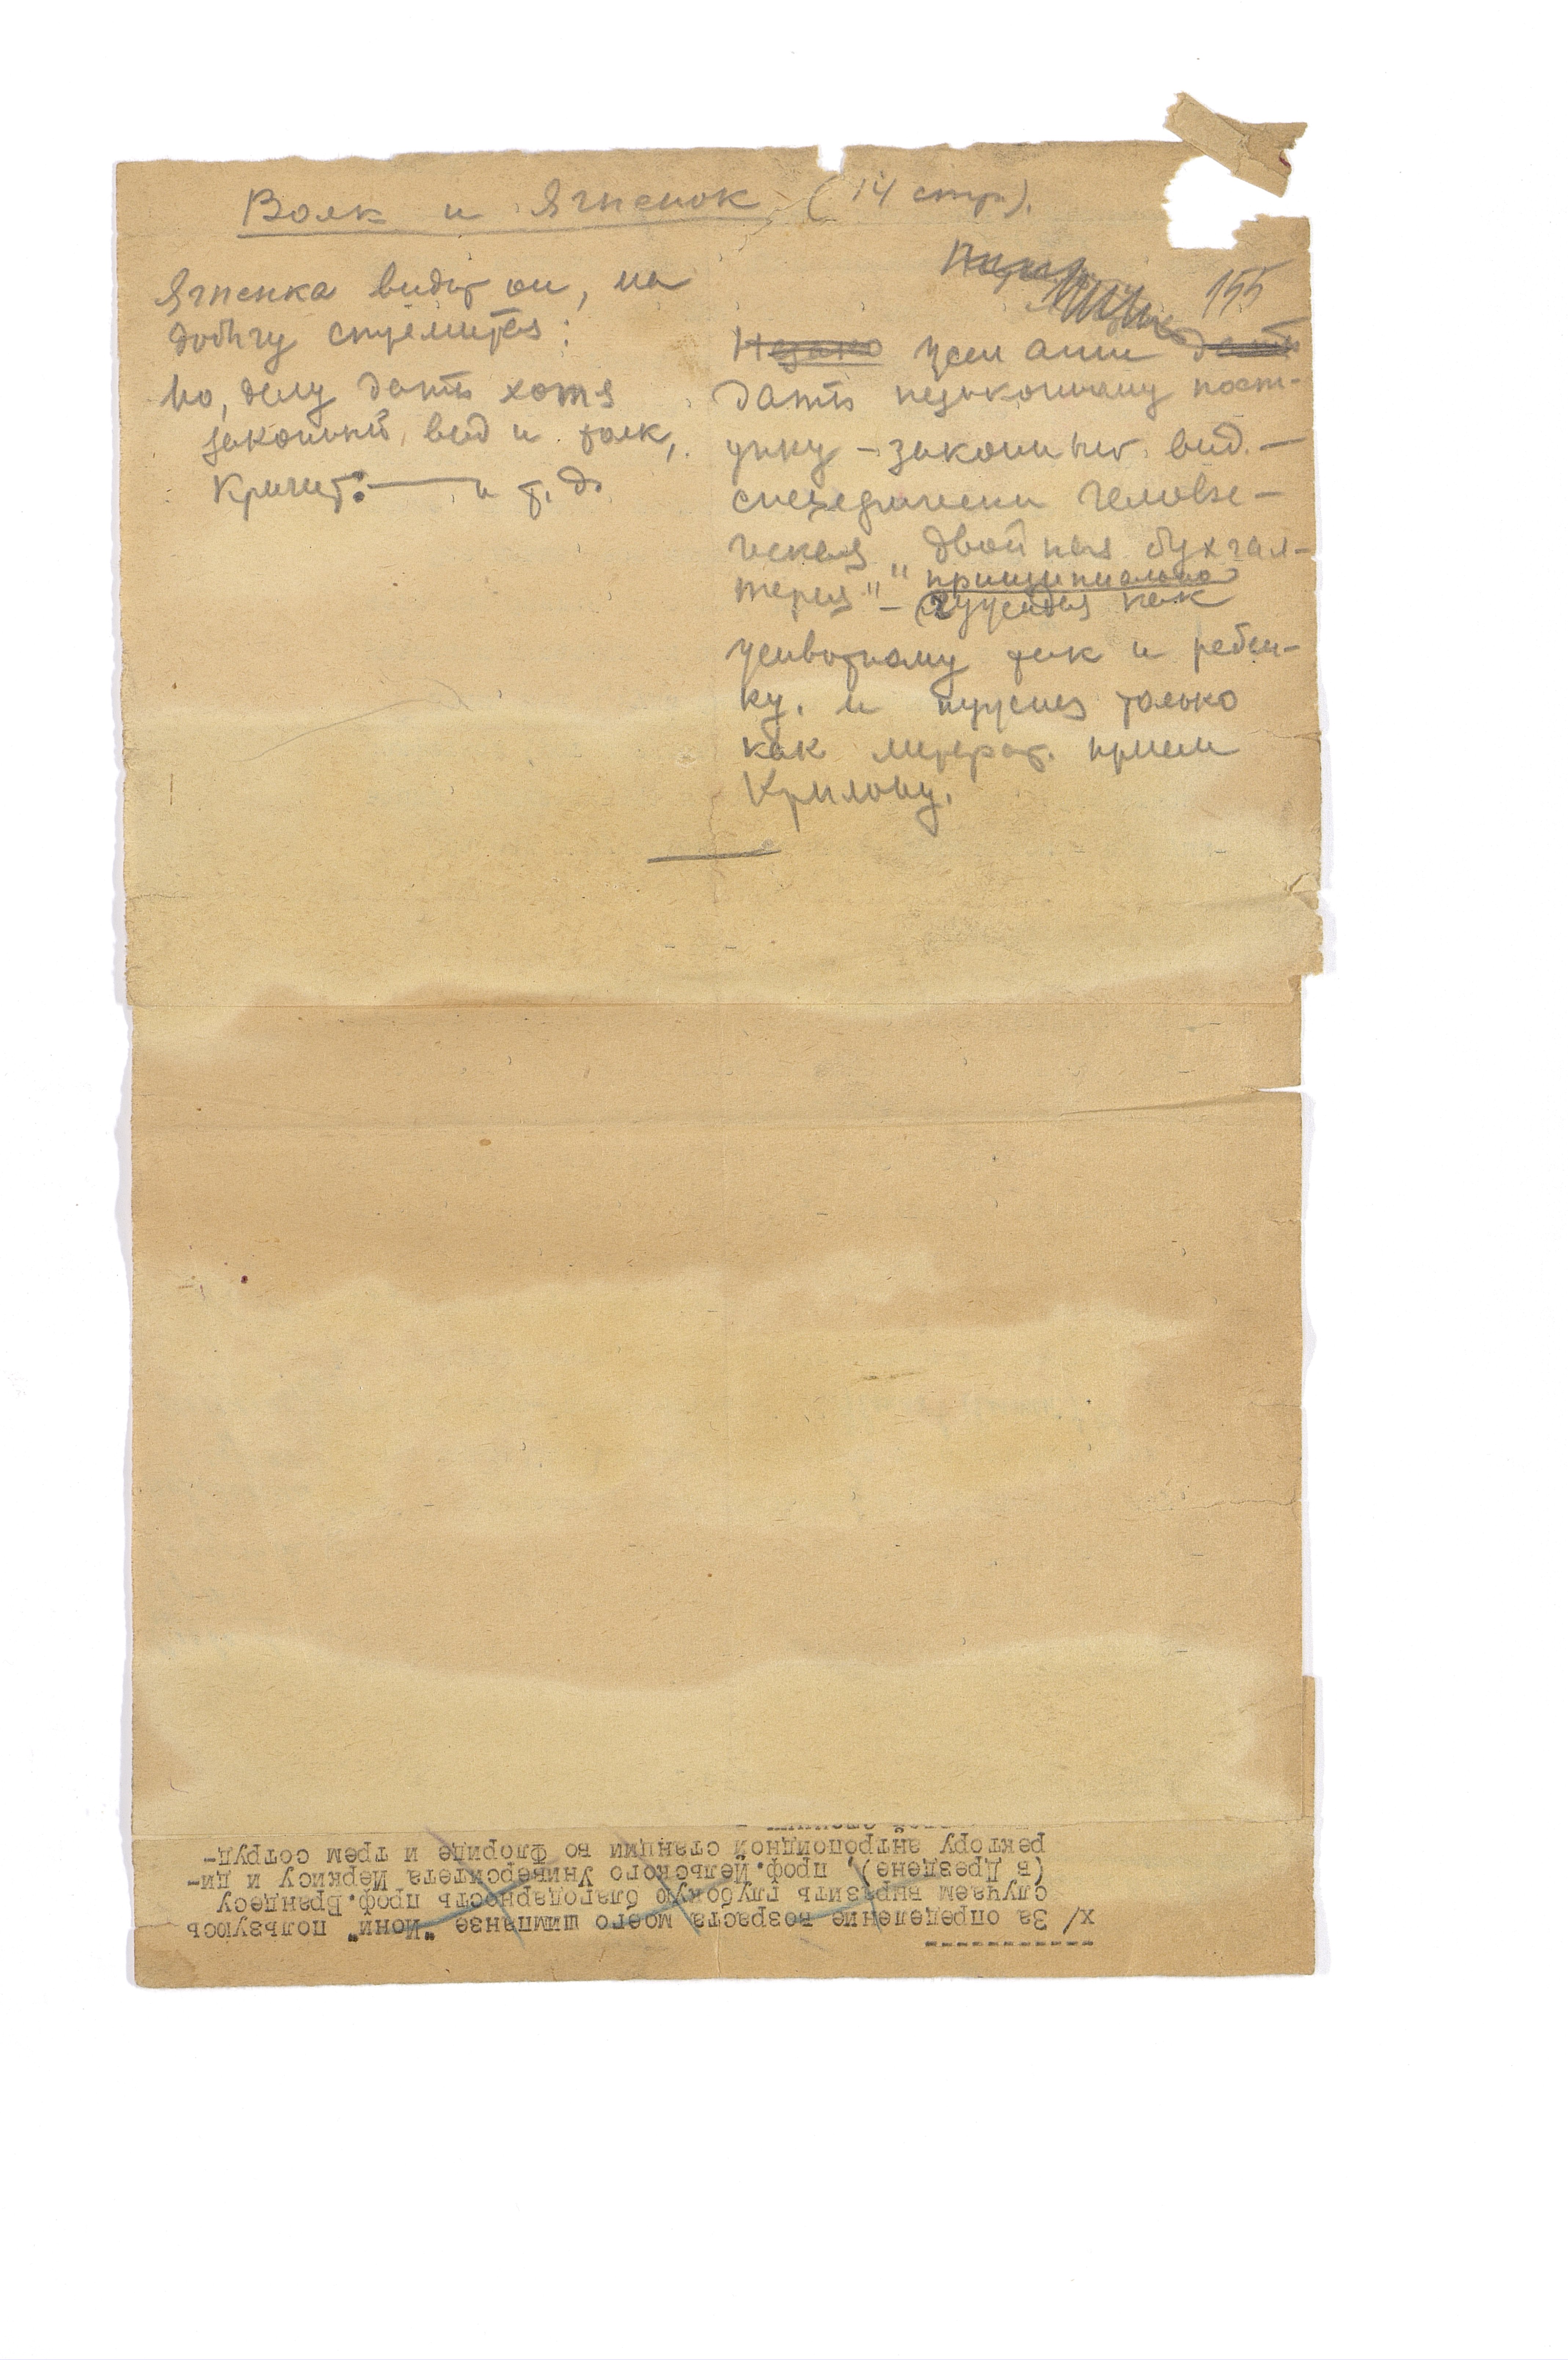 Волк и Ягненок (14 стр).
155
Ягненка видит он, на
добычу стремится:
Но, делу дать хотя
законный вид и толк,
Кричит: — и т. д.
Незако желание дать
дать незаконному пост-
упку – законный вид. –
специфически человече-
ская „двойная бухгал-
терия" – принципиально
чуждая как
животному так и ребен-
ку. и нужна только
как литерат. прием
Крылову.
х/ За определение возраста моего шимпанзе "Иони" пользуюсь
случаем выразить глубокую благодарность проф. Брандесу
(в Дрездене), проф. Йельского Университета Йерксу и ди-
ректору антропоидной станции во Флориде и трем сотруд-